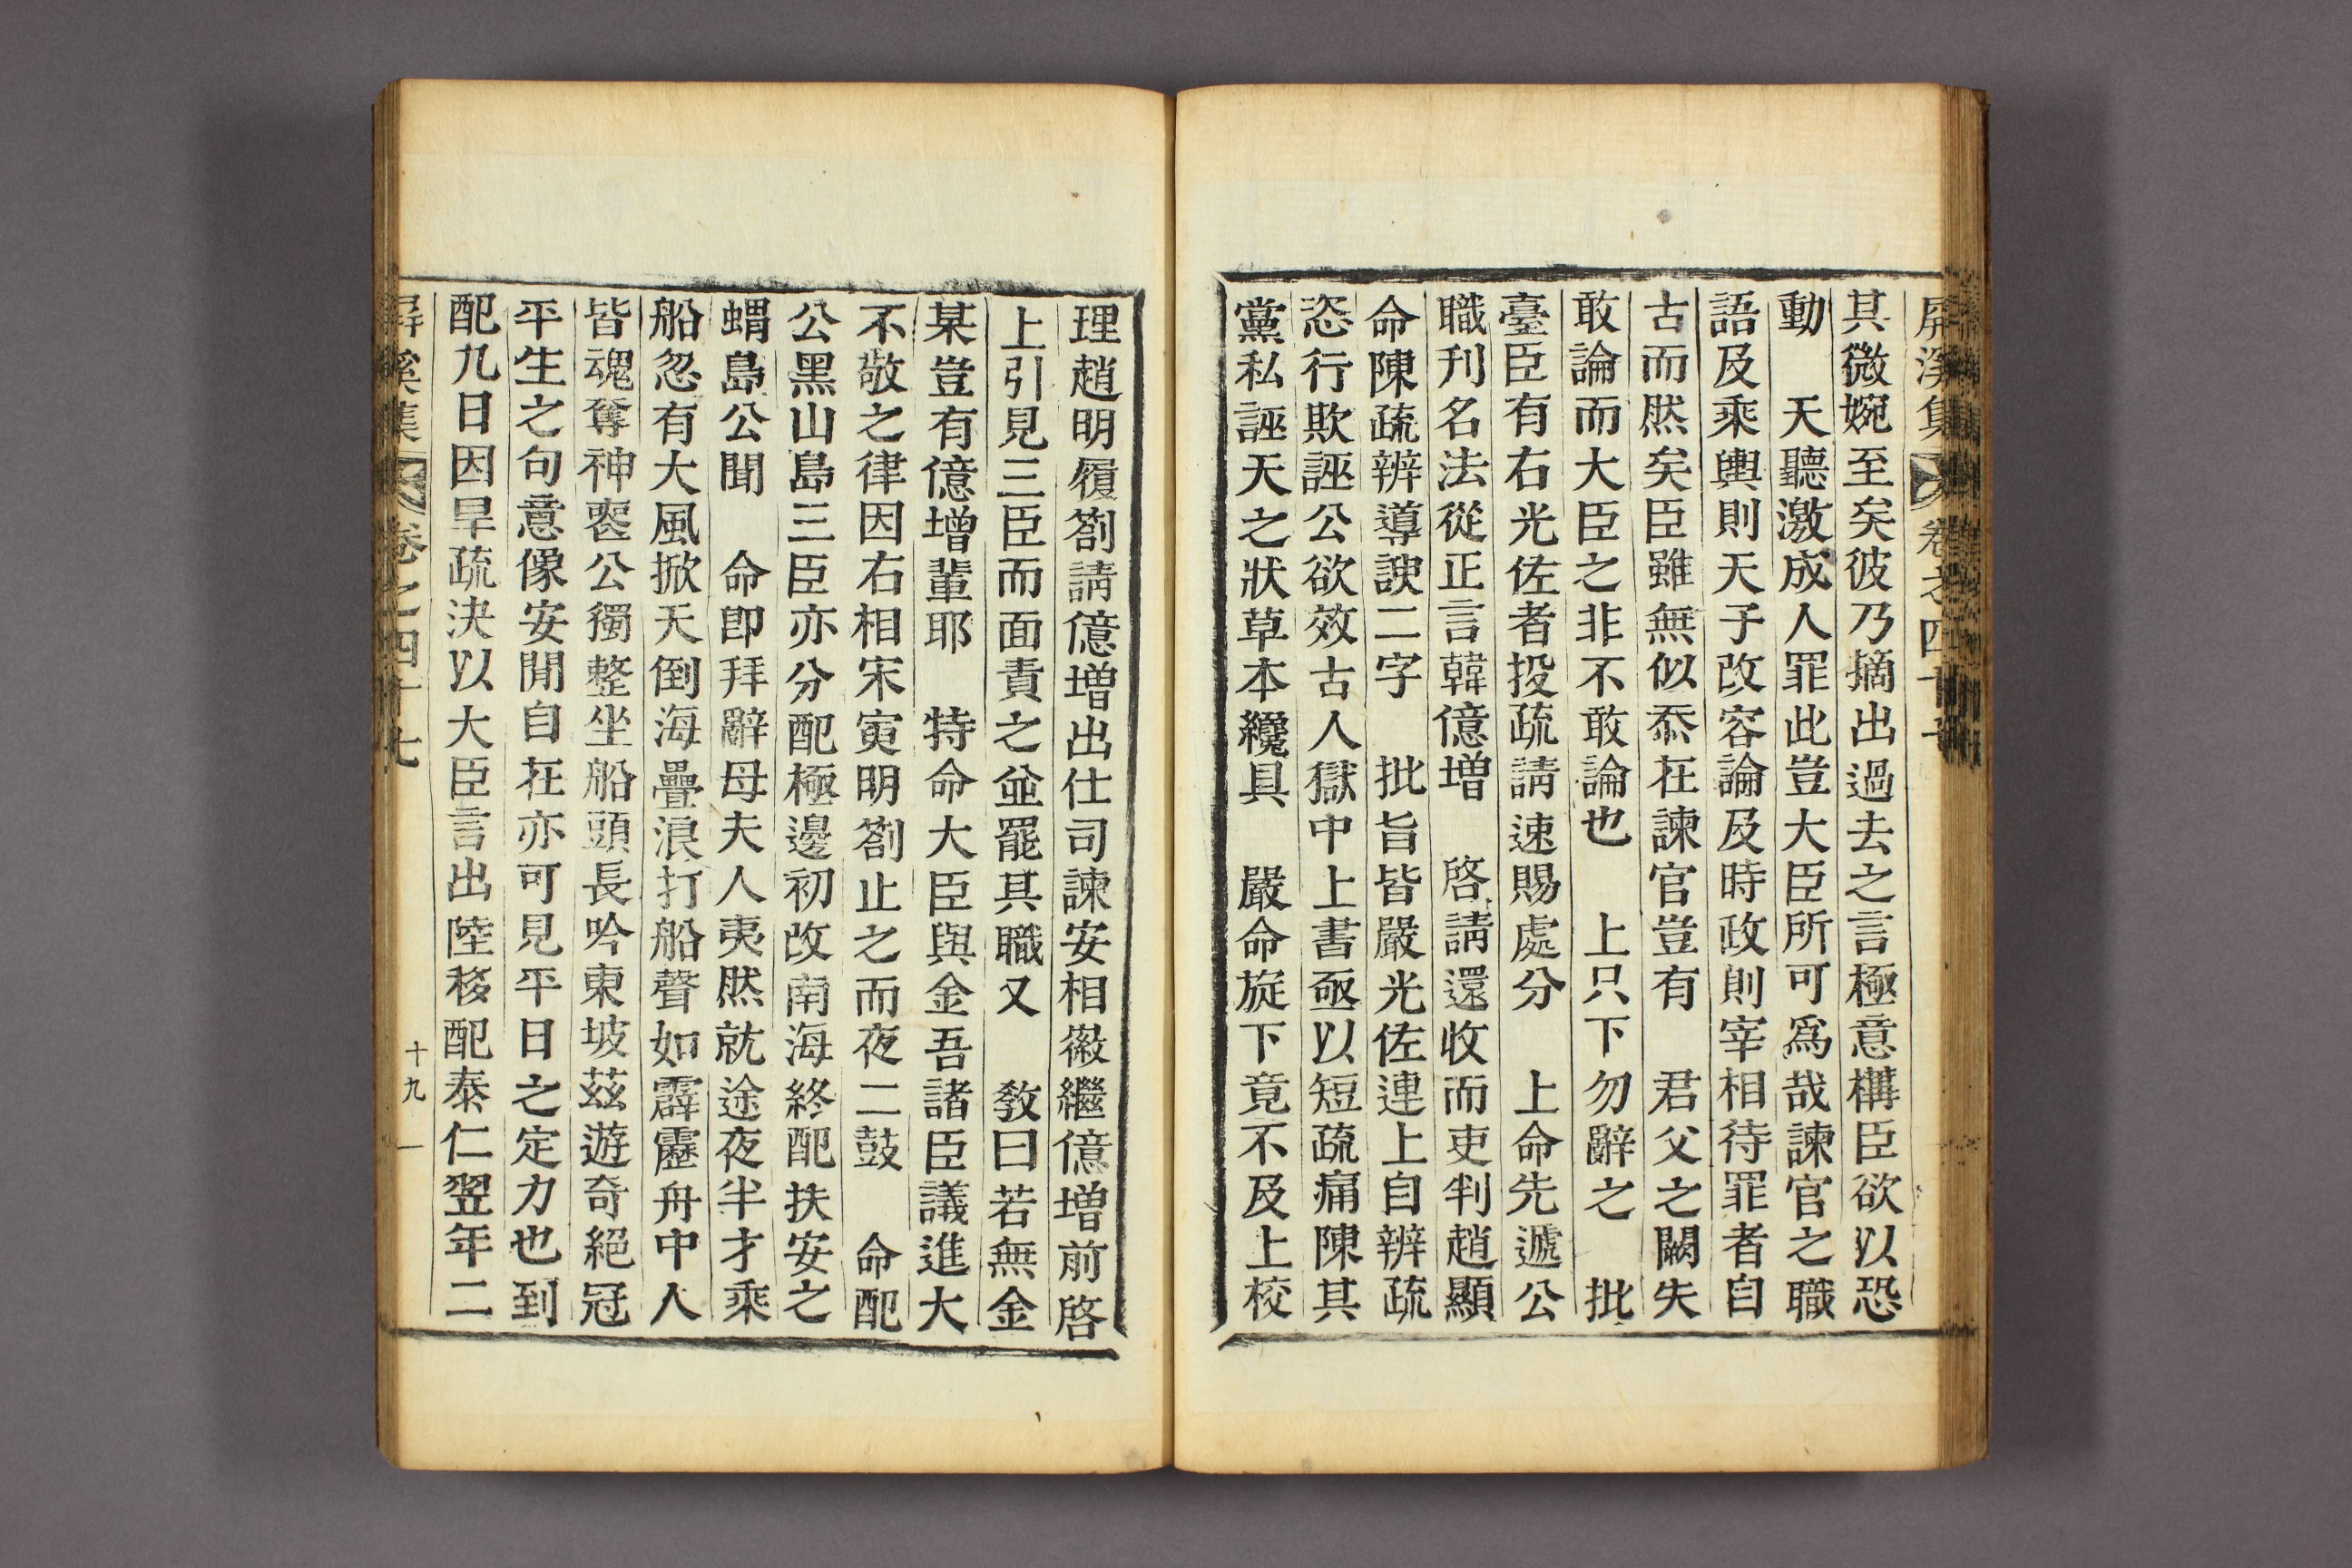 屛溪集 卷之四十七
其微婉至矣彼乃摘出過去之言極意構臣欲以恐
動 天聽激成人罪此豈大臣所可爲哉諫官之職
語及乘輿則天子改容論及時政則宰相待罪者自
古而然矣臣雖無似忝在諫官豈有 君父之闕失
敢論而大臣之非不敢論也 上只下勿辭之 批
臺臣有右光佐者投疏請速賜處分 上命先遞公
職刊名法從正言韓億增 啓請還收而吏判趙顯
命陳疏辨導諛二字 批旨皆嚴光佐連上自辨疏
恣行欺誣公欲效古人獄中上書亟以短疏痛陳其
黨私誣天之狀草本纔具 嚴命旋下竟不及上校
理趙明履箚請億增出仕司諫安相徽繼億增前啓
上引見三臣而面責之並罷其職又 敎曰若無金
某豈有億增輩耶 特命大臣與金吾諸臣議進大
不敬之律因右相宋寅明箚止之而夜二鼓 命配
公黑山島三臣亦分配極邊初改南海終配扶安之
蝟島公聞 命卽拜辭母夫人夷然就途夜半才乘
船忽有大風掀天倒海疊浪打船聲如霹靂舟中人
皆魂奪神喪公獨整坐船頭長吟東坡玆遊奇絕冠
平生之句意像安閒自在亦可見平日之定力也到
配九日因旱疏決以大臣言出陸移配泰仁翌年二
屛溪集 卷之四十七 十九